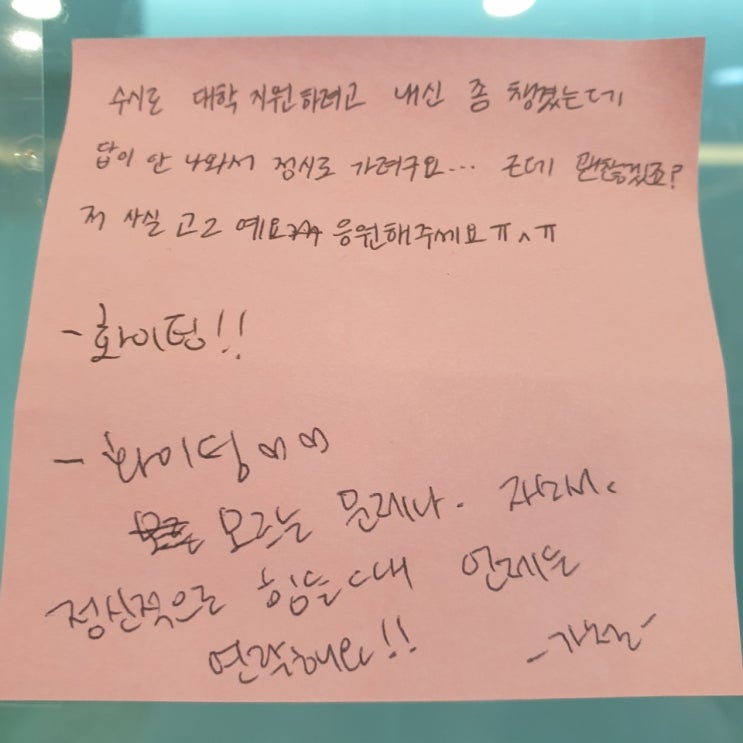 수시로 대학 지원하려고 내신 좀 챙겼는데
답이 안 나와서 정시로 가려구요... 근데 괜찮겠죠?
저 사실 고2 예요 응원해주세요ㅠㅅㅠ
- 화이팅!!
- 화이팅♡♡
모르는 문제나.
정신적으로 힘들 때 언제든
연락해요!!